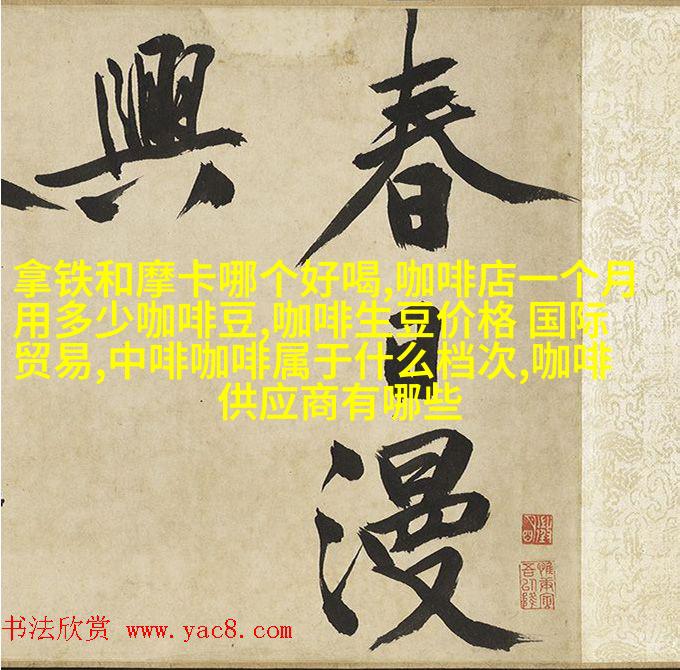 春日漫
興
拿铁和摩卡哪个好喝,咖啡店一个月
用多少咖啡豆,咖啡生豆价格 国际
贸易,中啡咖啡属于什么档次,咖啡
供应商有哪些
书法欣赏 www.yac8.com